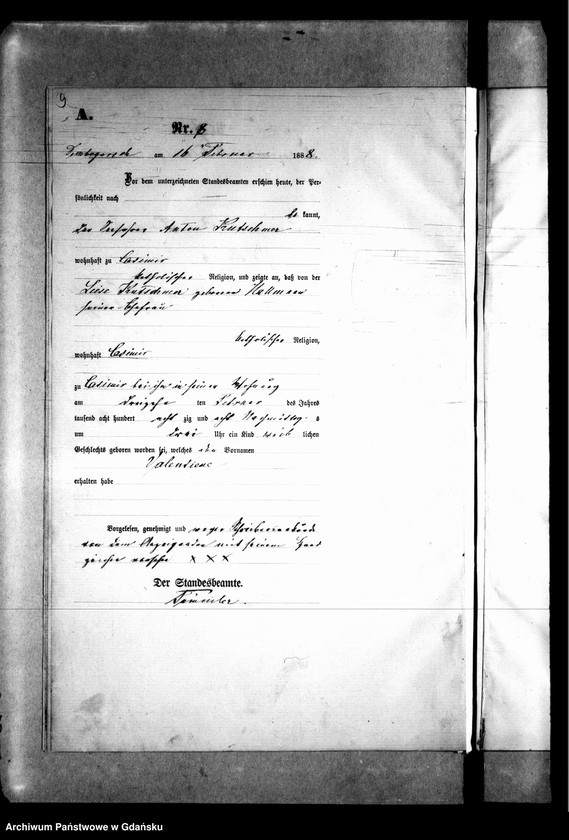 9
A.
Nr. 8
am 16 Februar 1888.
Vor dem unterzeichneten Standesbeamten erschien heute, der Per-
sönlichkeit nach
be kannt,
der Anton Kutschmer
wohnhaft zu Casimir
katholischer Religion, und zeigte an, daß von der
Liese Kutschmer geborenen Hallmann
seiner Ehefrau
katholischer Religion,
wohnhaft Casimir
zu Casimir bei ihm in seiner Wohnung
am dreizehn ten Februar des Jahres
tausend acht hundert acht zig und acht Nachmittag s
um drei Uhr ein Kind weib lichen
Geschlechts geboren worden sei, welches den Vornamen
Valentiene
erhalten habe
Vorgelesen, genehmigt und wegen Schreibensunkunde
von dem Anzeigenden mit seinem Hand
zeichen versehen x x x
Der Standesbeamte.
Archiwum Państwowe w Gdańsku